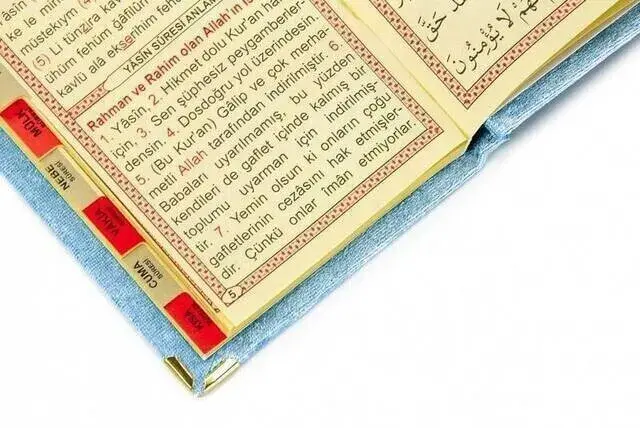 ke le min
müstekıym (4)
(5) Li tünzira kav
ühüm fehüm ğâfilûn
kavlü alâ ekserihim fehü
YÂSİN SÛRESİ ANLAM
Rahman ve Rahim olan Allah'ın is
1. Yâsîn, 2. Hikmet dolu Kur'an ha
için, 3. Sen şüphesiz peygamberler-
densin. 4. Dosdoğru yol üzerindesin.
5. (Bu Kur'an) Gâlip ve çok merha-
metli Allah tarafından indirilmiştir. 6.
Babaları uyarılmamış, bu yüzden
kendileri de gaflet içinde kalmış bir
toplumu uyarman için indirilmiş-
tir. 7. Yemin olsun ki onların çoğu
gafletlerinin cezâsını hak etmişler-
dir. Çünkü onlar îmân etmiyorlar.
5
MÜLK
SÛRESİ
NEBE
SÛRESİ
VAKIA
CUMA
SÛRESİ
KISA
حَقَّ
هُمْ لَا يُؤْمِنُونَ